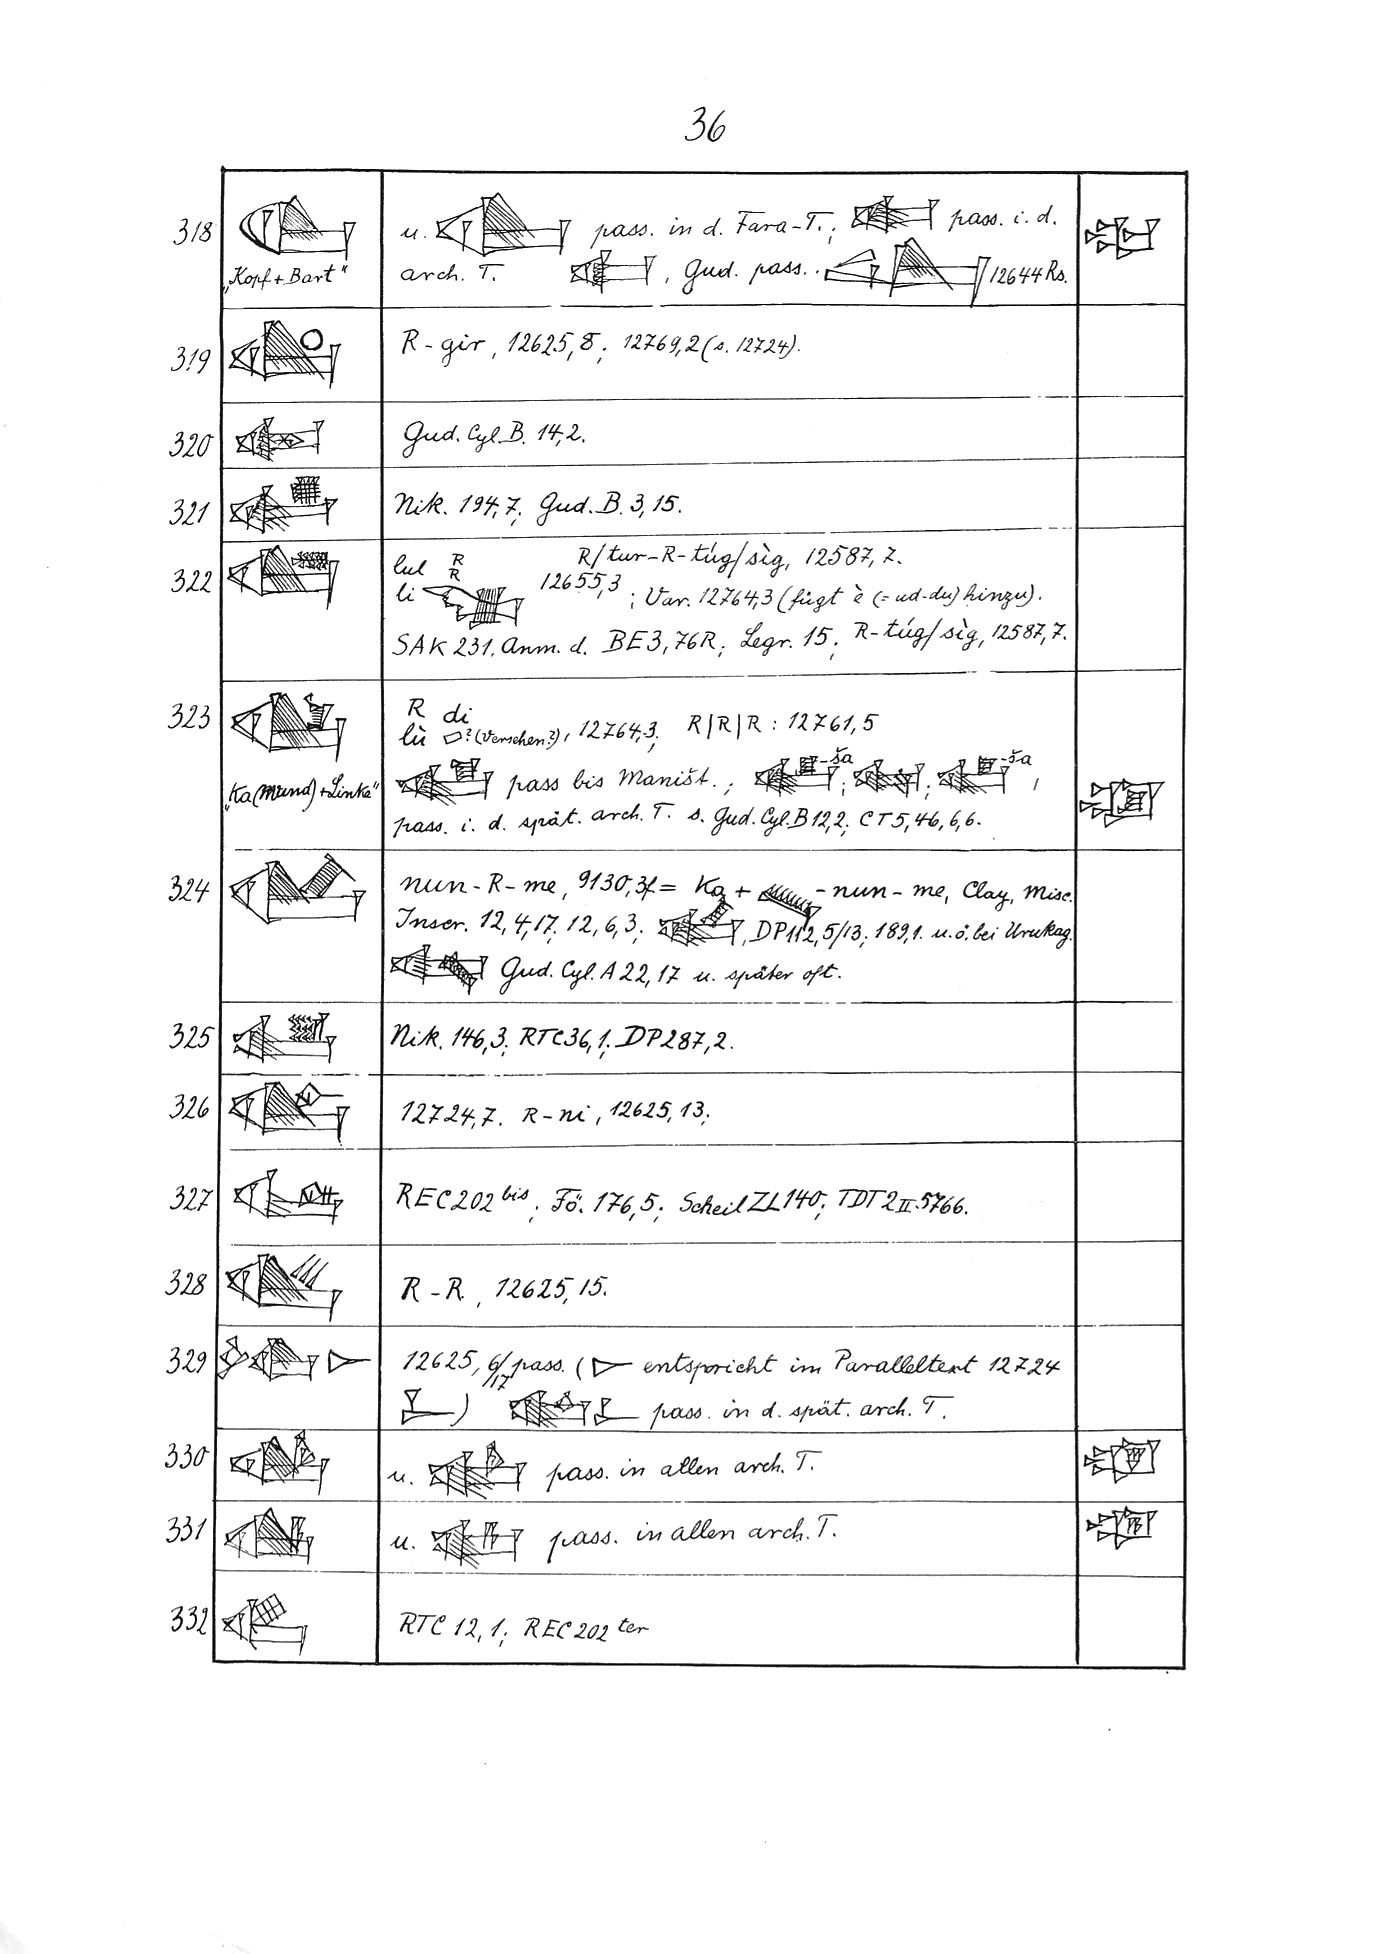 36
318
u. pass. in d. Fara-T.; pass. i. d.
„Kopf + Bart"
arch. T. , Gud. pass. . 12644 Rs.
319
R-gir, 12625,8; 12769,2 (s. 12724).
320
Gud. Cyl. B. 14,2.
321
Nik. 194,7; Gud. B. 3,15.
322
lul R R R/tur-R-túg/sìg, 12587,7.
li 12655,3 ; Var. 12764,3 (fügt è (= ud-du) hinzu).
SAK 231. Anm. d. BE3,76R; Legr. 15; R-túg/sìg, 12587,7.
323
R di
lù ? (Versehen?), 12764,3; R|R|R : 12761,5
„Ka (Mund) + Linke"
pass bis Maništ. ; -ša ; ; -ša ,
pass. i. d. spät. arch. T. s. Gud. Cyl. B 12,2; CT 5,46,6,6.
324
nun-R-me, 9130,3f = Ka + -nun-me, Clay, Misc.
Inscr. 12,4,17; 12,6,3; , DP 112,5/13; 189,1. u. ö. bei Urukag.
Gud. Cyl. A 22,17 u. später oft.
325
Nik. 146,3; RTC 36,1; DP 287,2.
326
12724,7. R-ni, 12625,13;
327
REC 202 bis; Fö. 176,5; Scheil ZL 140; TDT 2 II 5766.
328
R-R, 12625,15.
329
12625, 6/17 pass. ( entspricht im Paralleltext 12724
) pass. in d. spät. arch. T.
330
u. pass. in allen arch. T.
331
u. pass. in allen arch. T.
332
RTC 12,1; REC 202 ter